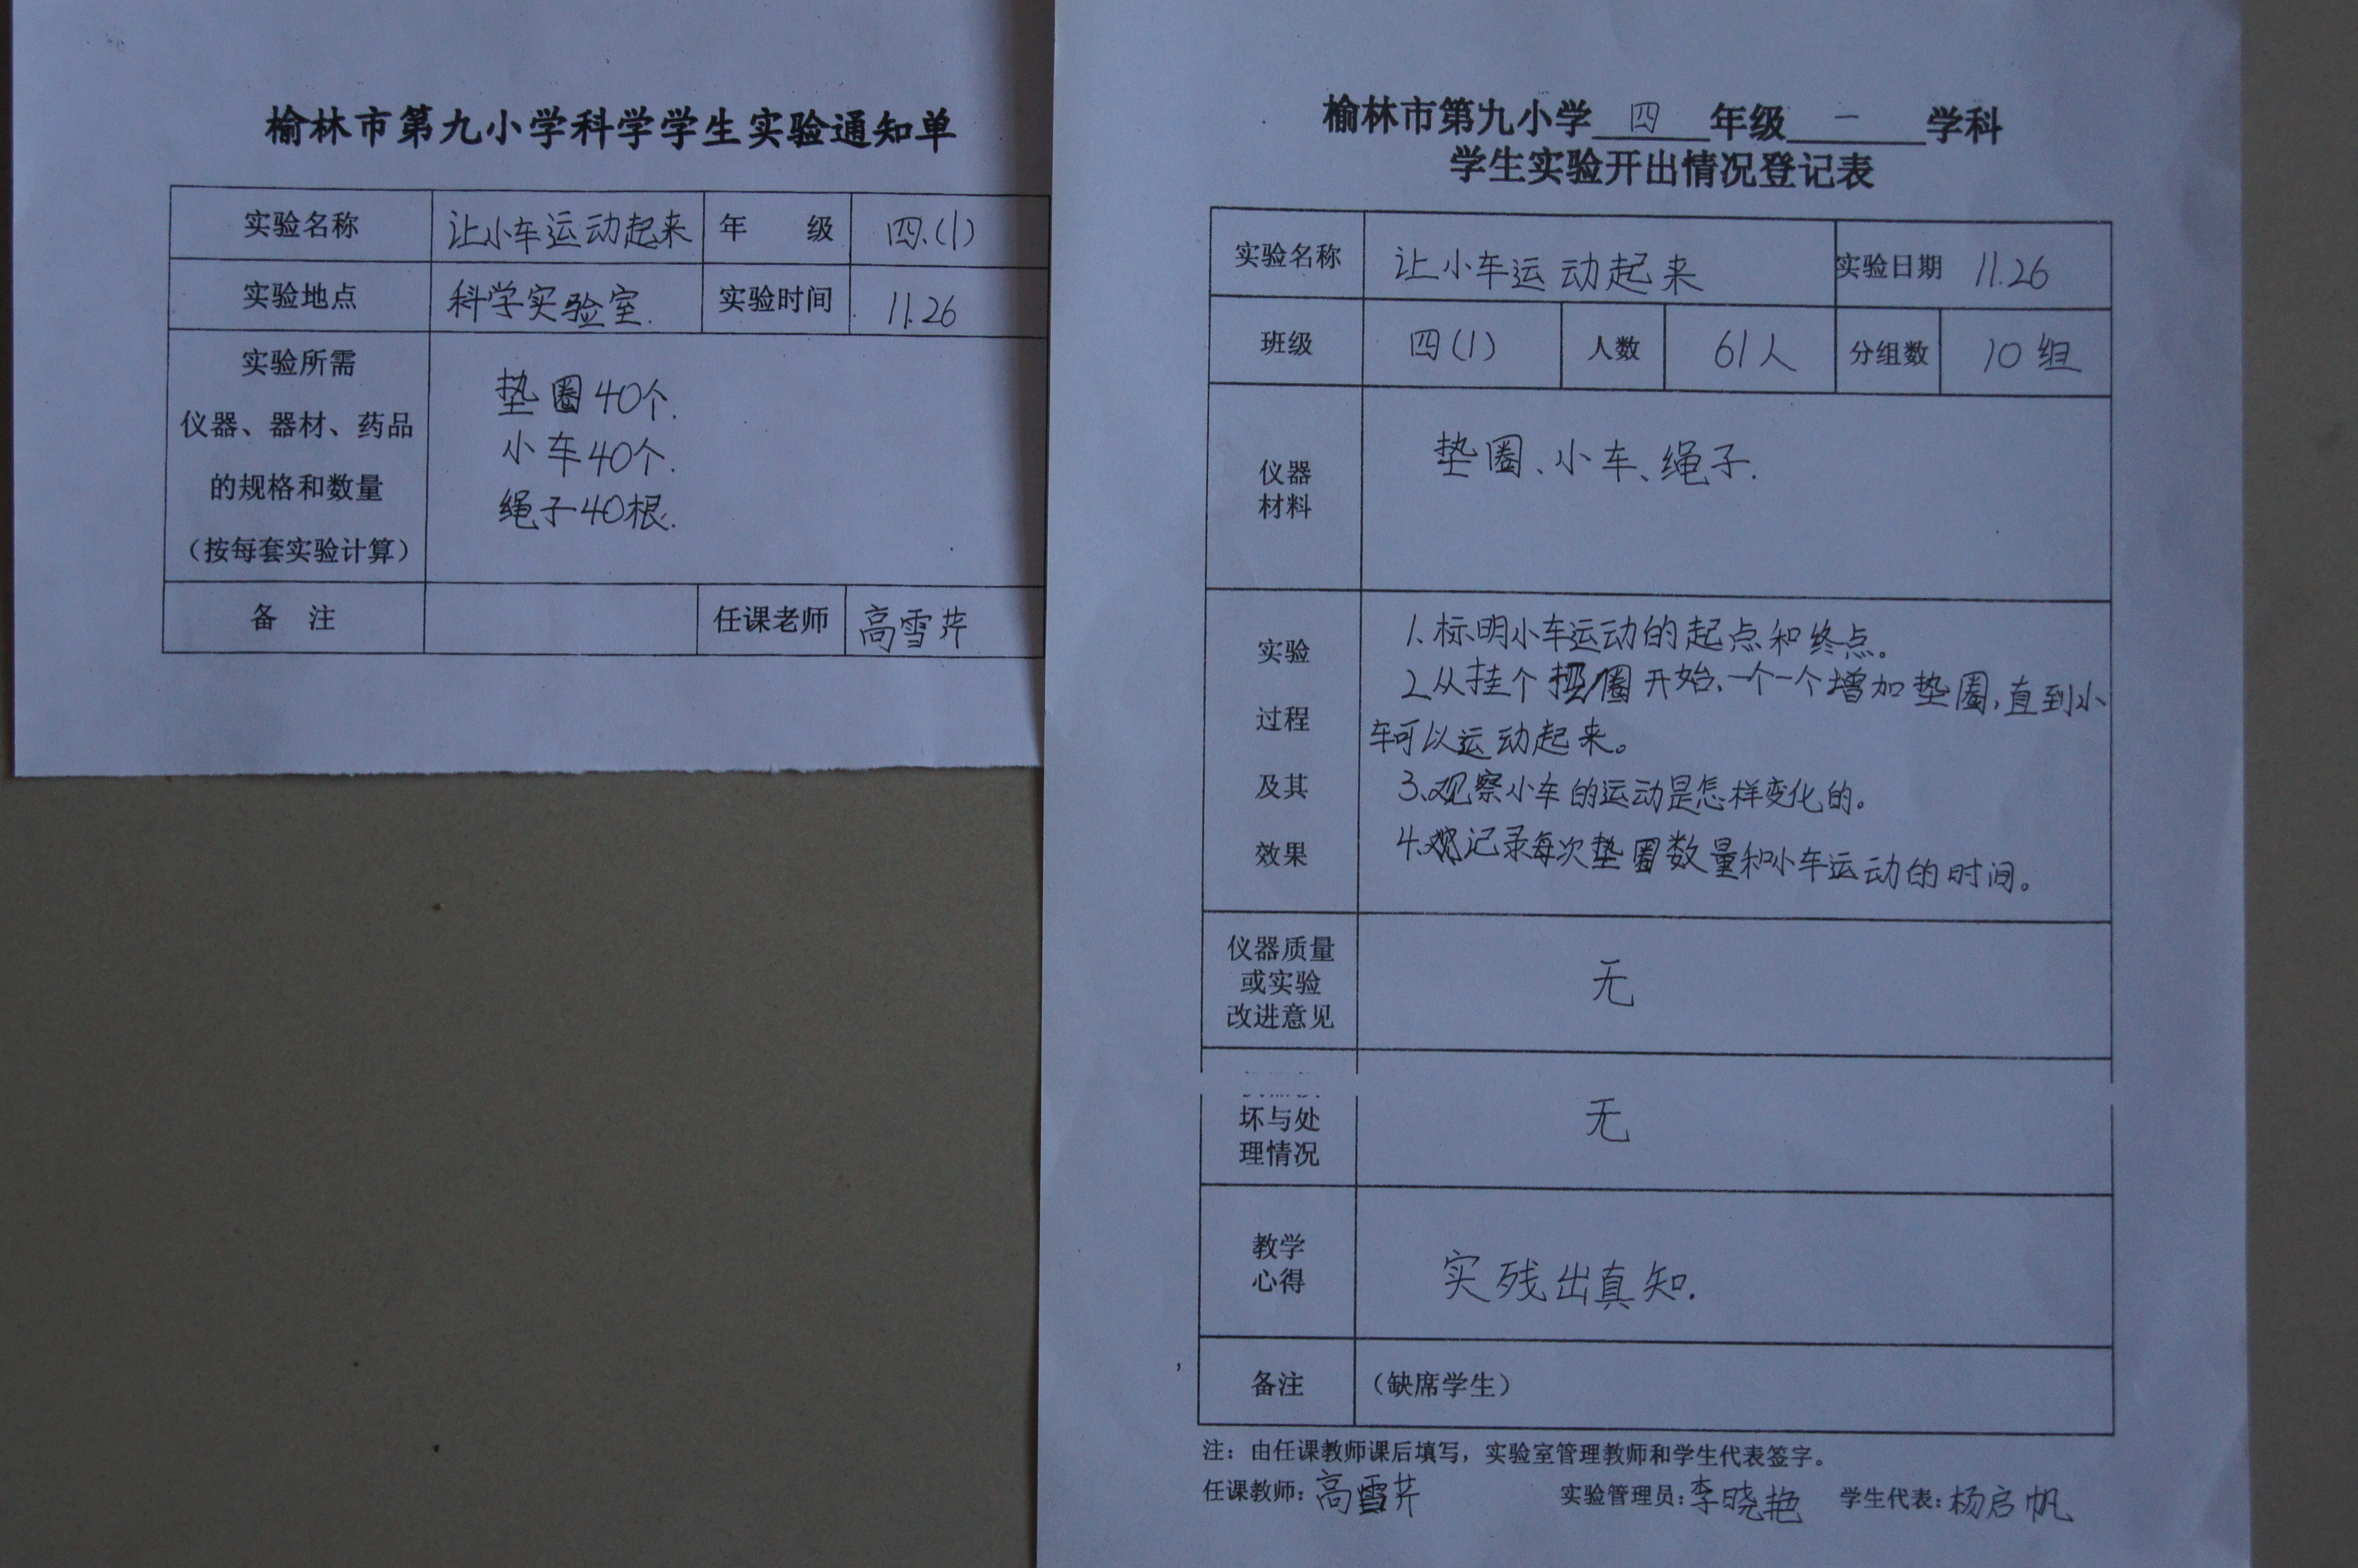 榆林市第九小学科学学生实验通知单
实验名称 让小车运动起来 年 级 四.(1)
实验地点 科学实验室. 实验时间 11.26
实验所需
仪器、器材、药品
的规格和数量
（按每套实验计算）
垫圈40个.
小车40个.
绳子40根.
备 注 任课老师 高雪芹
榆林市第九小学 四 年级 一 学科
学生实验开出情况登记表
实验名称 让小车运动起来 实验日期 11.26
班级 四(1) 人数 61人 分组数 10组
仪器
材料
垫圈、小车、绳子.
实验
过程
及其
效果
1.标明小车运动的起点和终点。
2.从挂个 圈开始、一个一个增加垫圈,直到小
车可以运动起来。
3.观察小车的运动是怎样变化的。
4.记录每次垫圈数量和小车运动的时间。
仪器质量
或实验
改进意见
无
坏与处
理情况
无
教学
心得
实残出真知.
备注 （缺席学生）
注：由任课教师课后填写，实验室管理教师和学生代表签字。
任课教师：高雪芹 实验管理员：李晓艳 学生代表：杨启帆